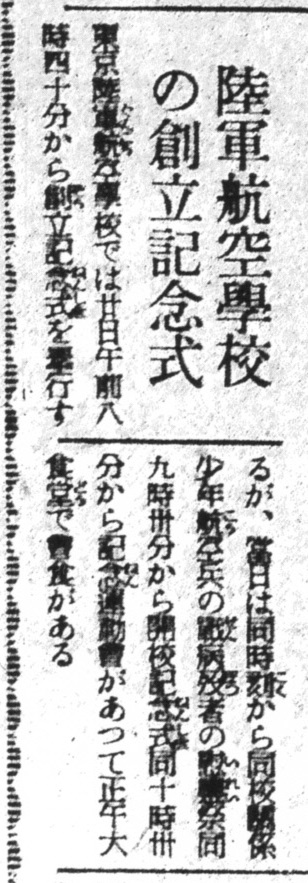 陸軍航空學校
の創立記念式
東京陸軍航空學校では廿日午前八
時四十分から創立記念式を擧行す
るが、當日は同時刻から同校關係
少年航空兵の戰病歿者の慰靈祭同
九時卅分から開校記念式同十時卅
分から記念運動會があつて正午大
食堂で會食がある